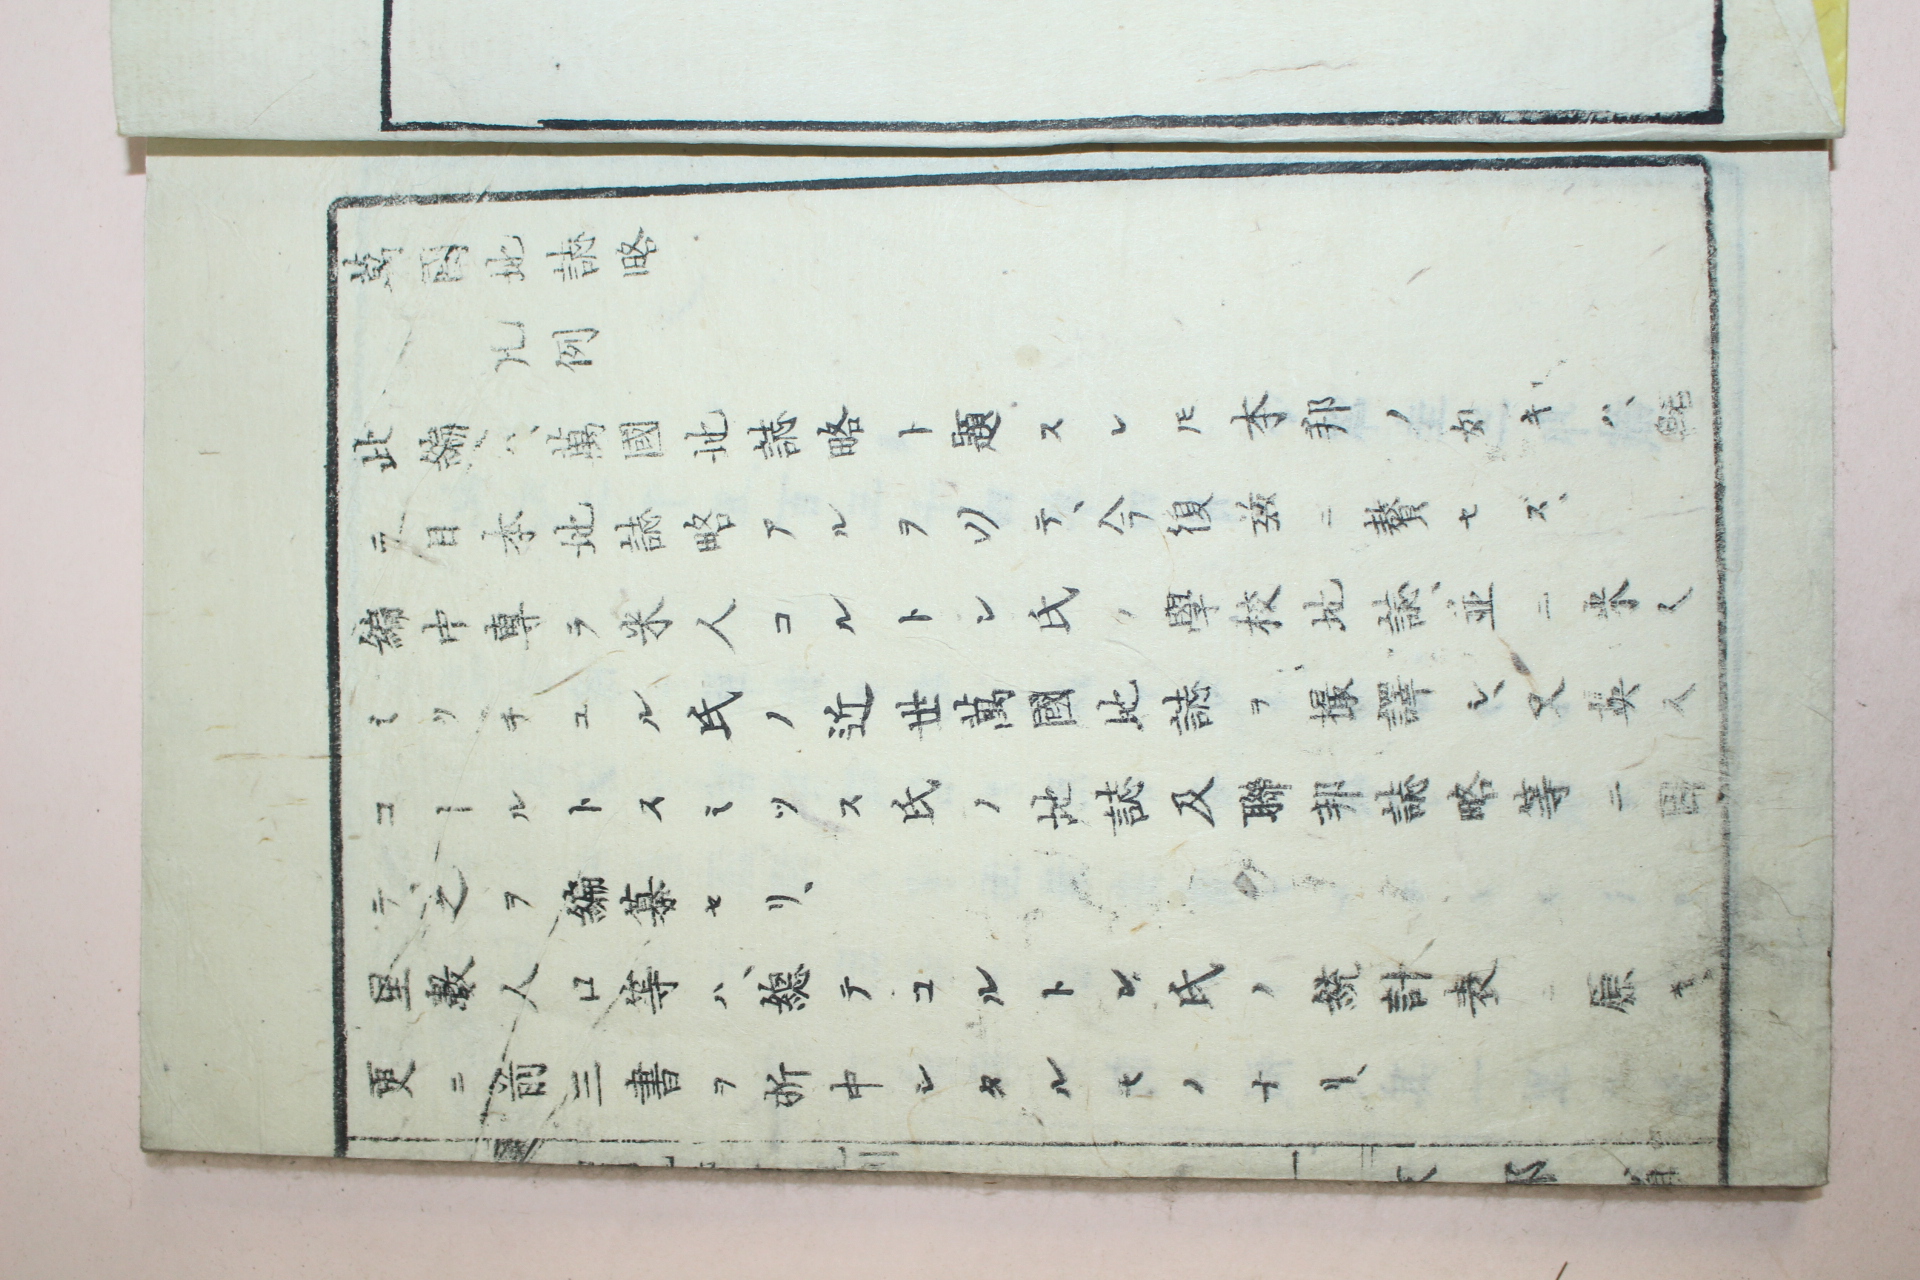 萬國地誌略
凡例
此編ハ萬國地誌略ト題スレ𪜈本邦ノ如キハ、既
ニ日本地誌略アルヲ以テ、今復玆ニ贅セズ、
編中專ラ米人コルトン氏ノ學校地誌、並ニ米人
ミッチュル氏ノ近世萬國地誌ヲ撮譯シ、又英人
コールトスミッス氏ノ地誌及聯邦誌略等ニ因
テ之ヲ編纂セリ、
里數人口等ハ、總テコルトン氏ノ統計表ニ原キ、
更ニ前三書ヲ折中シタルモノナリ、